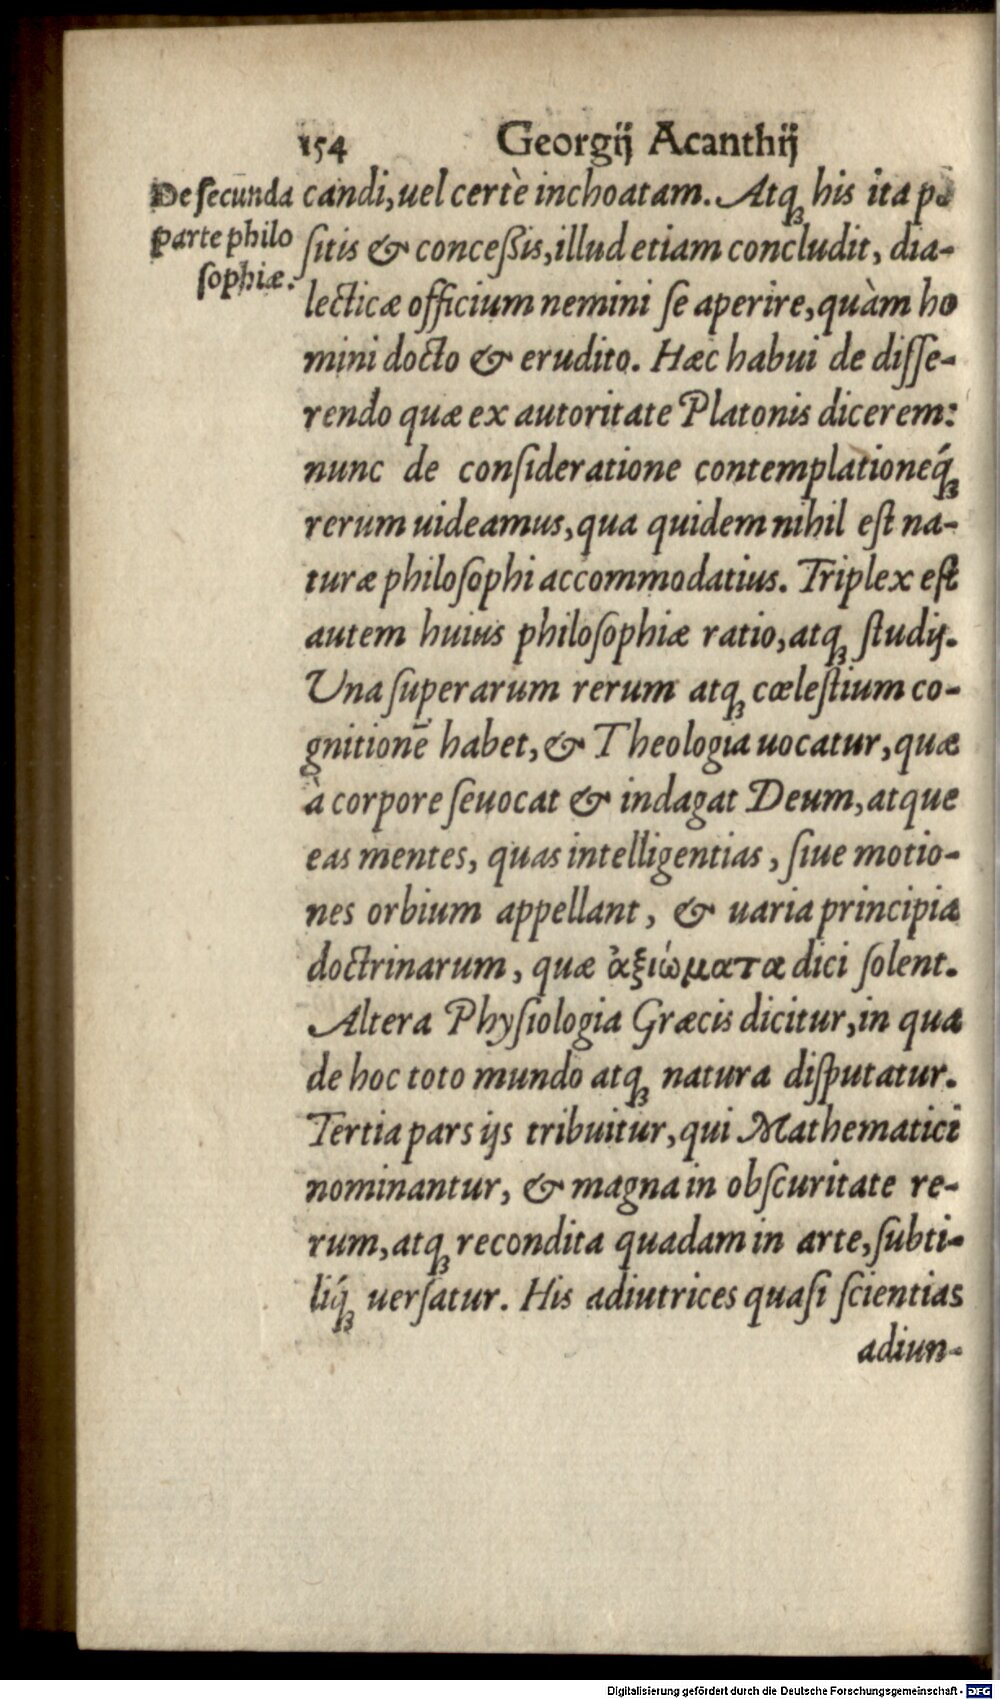 154 Georgij Acanthij
De secunda
parte philo
sophiæ.
candi, uel certè inchoatam. Atq; his ita po
ſitis & conceßis, illud etiam concludit, dia-
lecticæ officium nemini ſe aperire, quàm ho
mini docto & erudito. Hæc habui de diſſe-
rendo quæ ex autoritate Platonis dicerem:
nunc de conſideratione contemplationeq́;
rerum uideamus, qua quidem nihil eſt na-
turæ philoſophi accommodatius. Triplex eſt
autem huius philoſophiæ ratio, atq; ſtudij.
Vna ſuperarum rerum atq; cœleſtium co-
gnitionē habet, & Theologia uocatur, quæ
à corpore ſeuocat & indagat Deum, atque
eas mentes, quas intelligentias, ſiue motio-
nes orbium appellant, & uaria principia
doctrinarum, quæ ἀξιώματα dici ſolent.
Altera Phyſiologia Græcis dicitur, in qua
de hoc toto mundo atq; natura diſputatur.
Tertia pars ijs tribuitur, qui Mathematici
nominantur, & magna in obſcuritate re-
rum, atq; recondita quadam in arte, ſubti-
liq́; uerſatur. His adiutrices quaſi ſcientias
adiun-
Digitalisierung gefördert durch die Deutsche Forschungsgemeinschaft - DFG